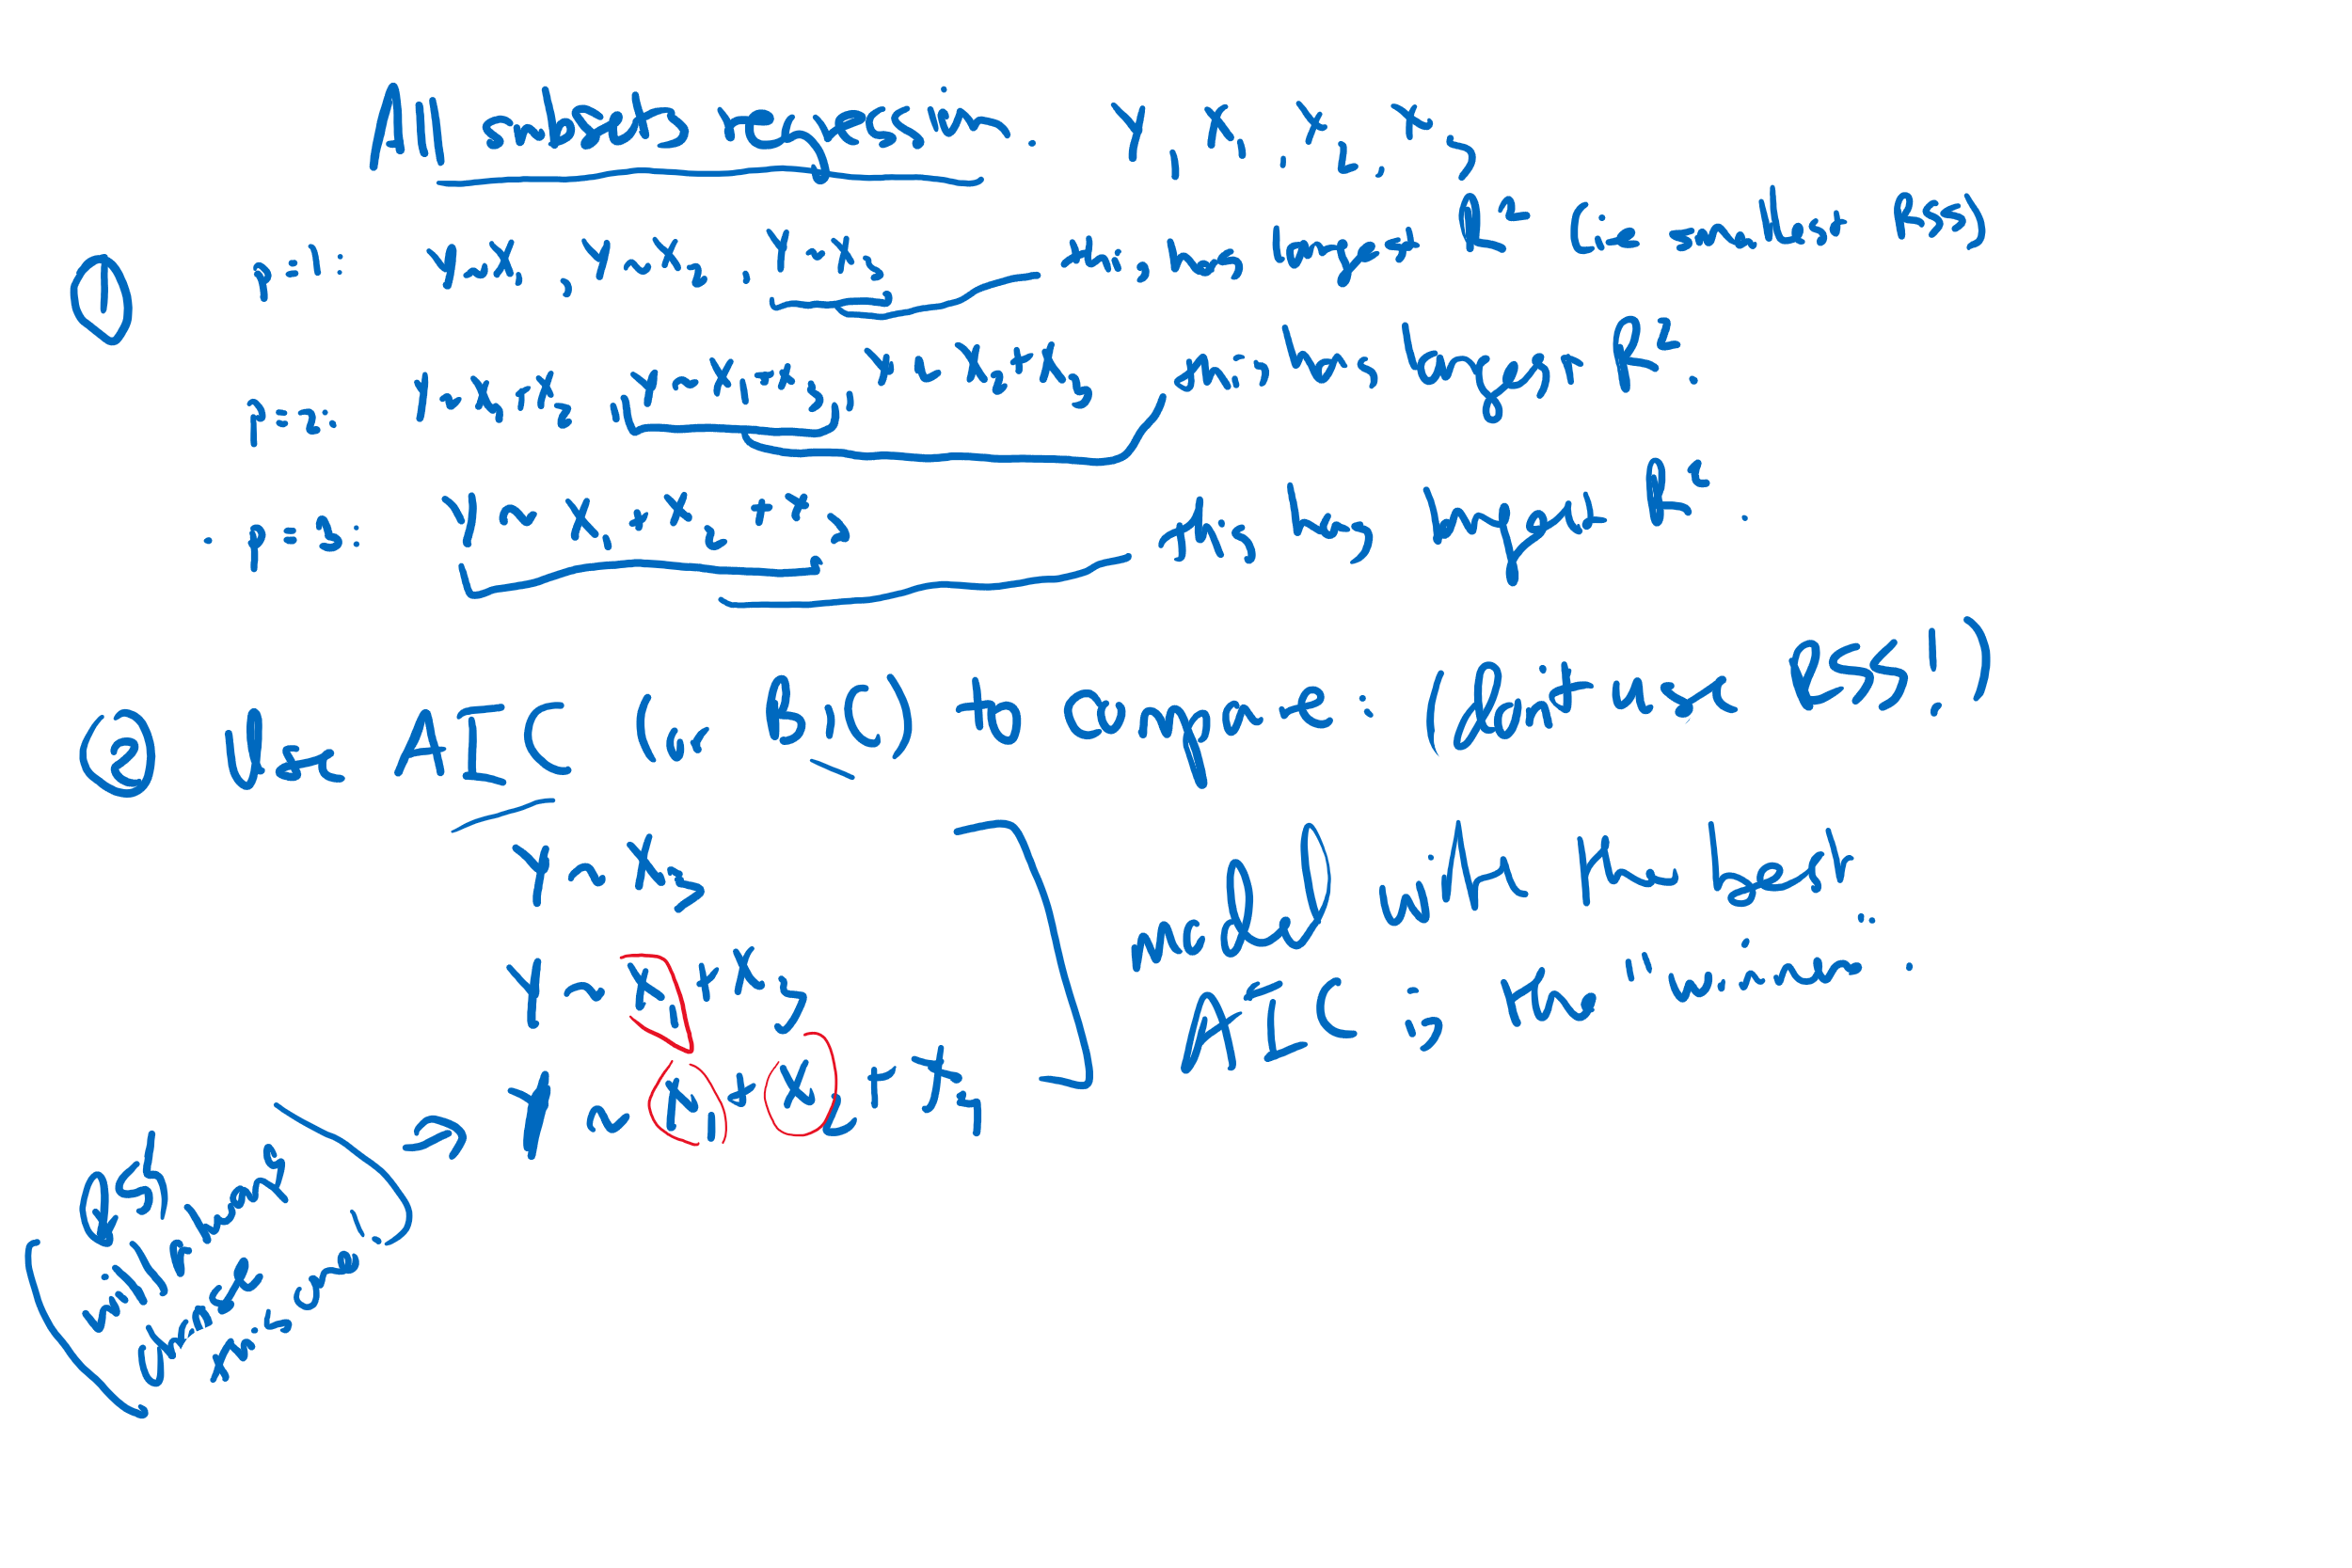 All subsets regression. Y, X1, X2, X3
① p=1: Y~X1, Y~X2, Y~X3 this has largest R² (ie smallest RSS)
p=2: Y~X1+X2, Y~X1+X3, Y~X2+X3 this has largest R².
p=3: Y~X1+X2+X3 this has largest R².
② Use AIC (or BIC) to compare: (don't use RSS!)
Y~X3
Y~X1+X3
Y~X1+X2+X3
model with the best
AIC is the "winner".
(RSS
will always
choose
this one!)